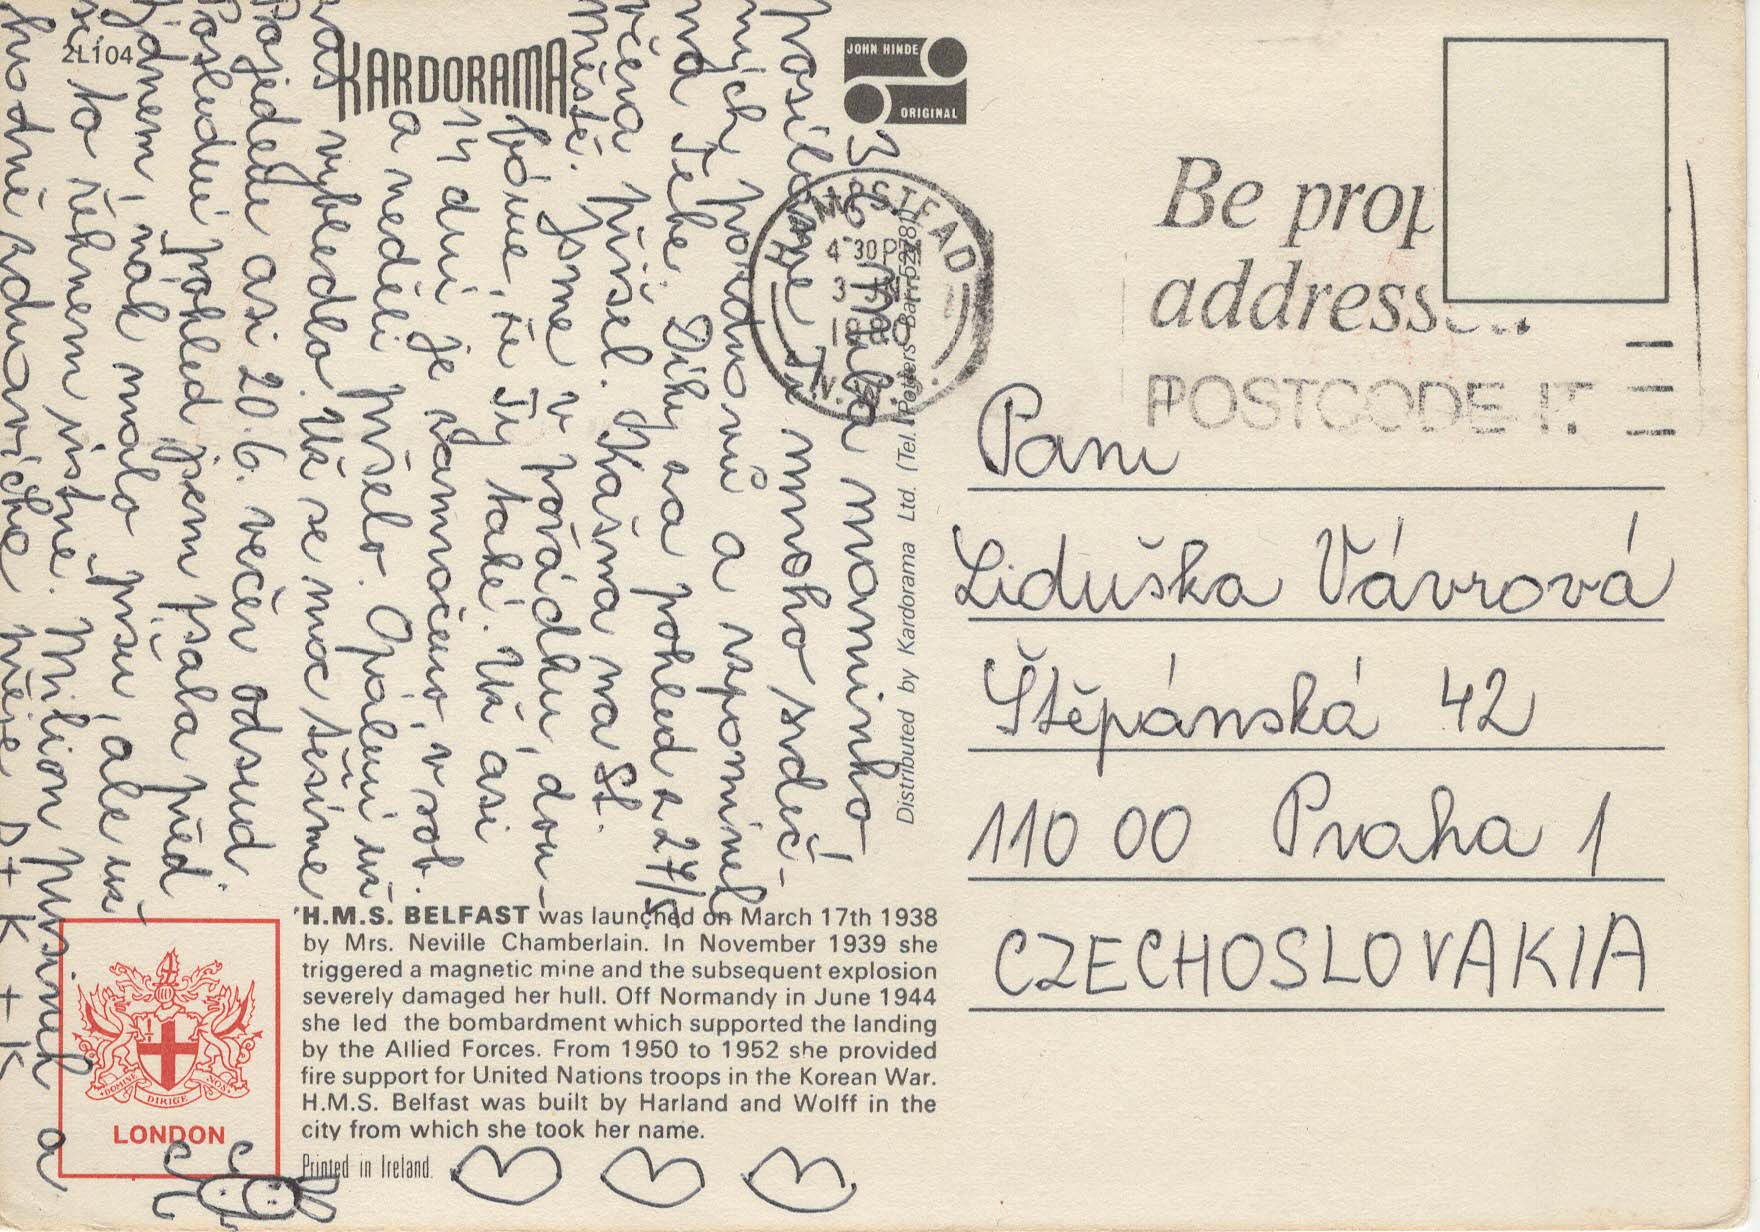 2L104
KARDORAMA
JOHN HINDE
ORIGINAL
3. 6.
milá maminko
posíláme Ti mnoho srdeč-
ných pozdravů a vzpomínek
na Tebe. Díky za pohled z 27/5
včera přišel. Kašna na St.
městě. Jsme v pořádku, dou-
fáme, že Ty také. Už asi
14 dní je zamračeno, v sob.
a neděli pršelo. Opálení už
vybledlo. Už se moc těšíme
Pojedeme asi 20.6. večer odsud.
Poslední pohled jsem psala před
týdnem, nák málo píšu, ale už
si to řeknem ústně. Milion pusinek a
hodně zdravíčka přeje D + K + K
HAMPSTEAD
4-30 PM
3
N.W.3.
Be prop
address
POSTCODE IT
Distributed by Kardorama Ltd. (Tel. Potters Bar
Paní
Liduška Vávrová
Štěpánská 42
110 00 Praha 1
CZECHOSLOVAKIA
H.M.S. BELFAST was launched on March 17th 1938
by Mrs. Neville Chamberlain. In November 1939 she
triggered a magnetic mine and the subsequent explosion
severely damaged her hull. Off Normandy in June 1944
she led the bombardment which supported the landing
by the Allied Forces. From 1950 to 1952 she provided
fire support for United Nations troops in the Korean War.
H.M.S. Belfast was built by Harland and Wolff in the
city from which she took her name.
Printed in Ireland.
DOMINE DIRIGE NOS
LONDON